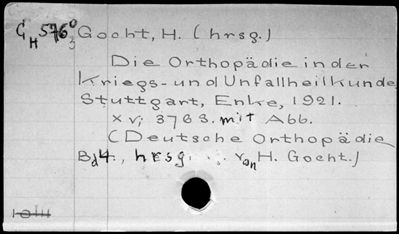 G H 576⁰ 3 Gocht, H. (hrsg.)
Die Orthopädie in der
Kriegs- und Unfallheilkunde
Stuttgart, Enke, 1921.
xvi 376 S. mit Abb.
(Deutsche Orthopädie
Bd 4., hrsg. ... von H. Gocht.)